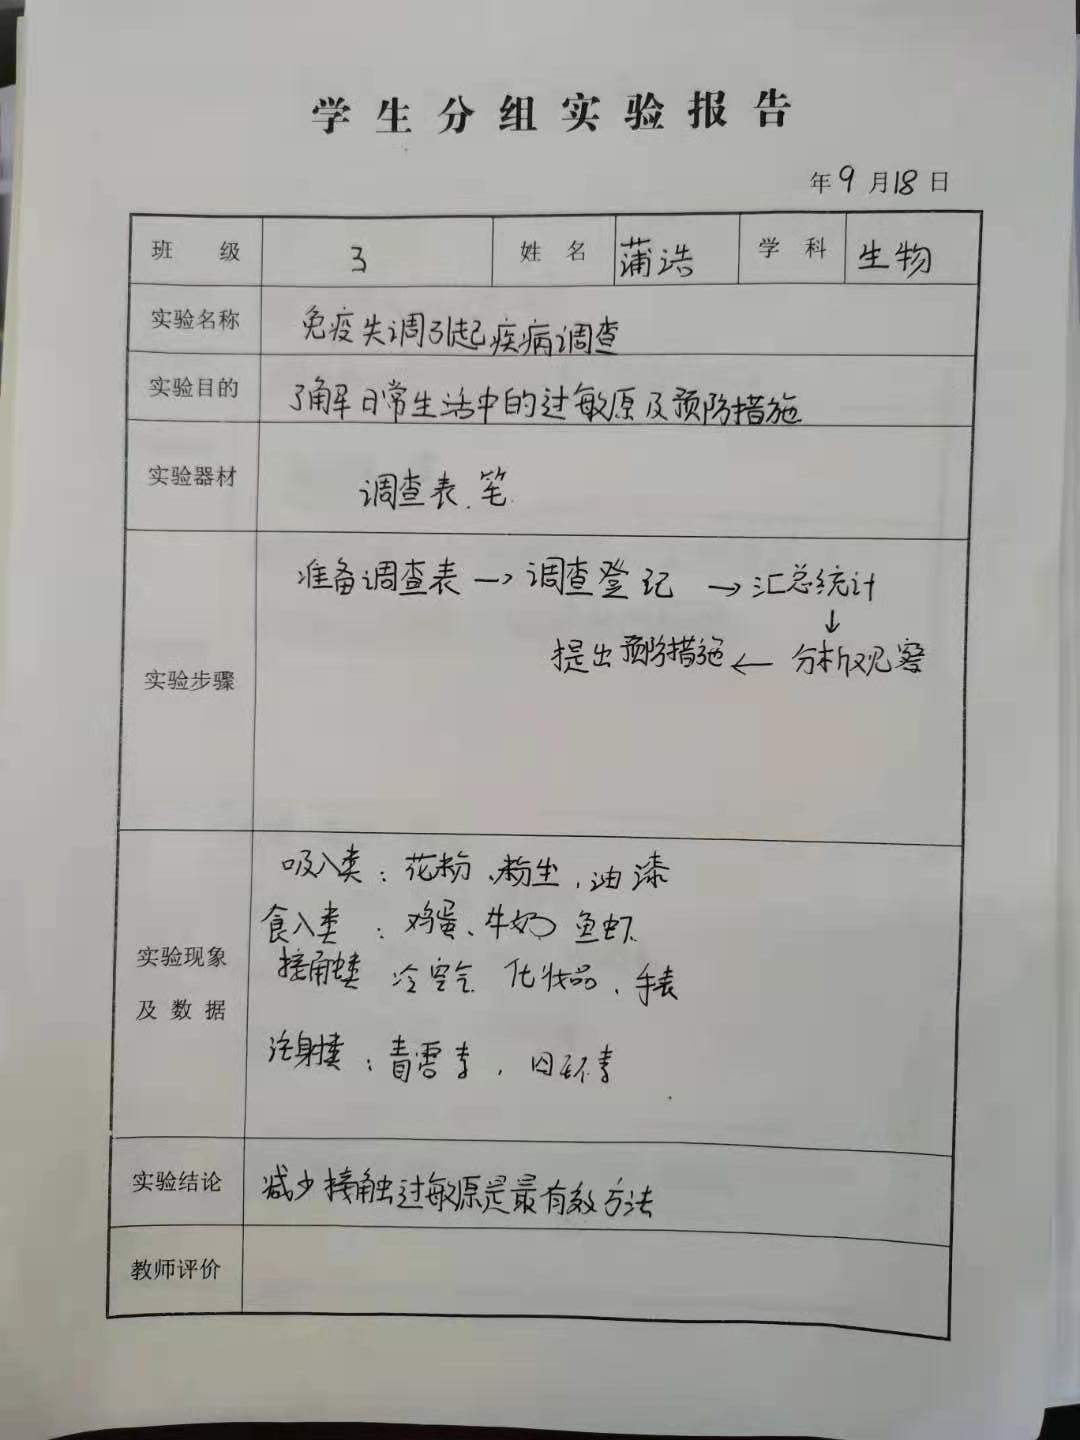 学生分组实验报告
年9月18日
班级 3 姓名 蒲浩 学科 生物
实验名称 免疫失调引起疾病调查
实验目的 了解日常生活中的过敏原及预防措施
实验器材 调查表、笔.
准备调查表→调查登记→汇总统计
↓
提出预防措施←分析观察
实验步骤
吸入类:花粉、粉尘,油漆
食入类:鸡蛋、牛奶 鱼虾
接触类 冷空气 化妆品、手表
实验现象
及数据
注射类:青霉素,
实验结论 减少接触过敏原是最有效方法
教师评价